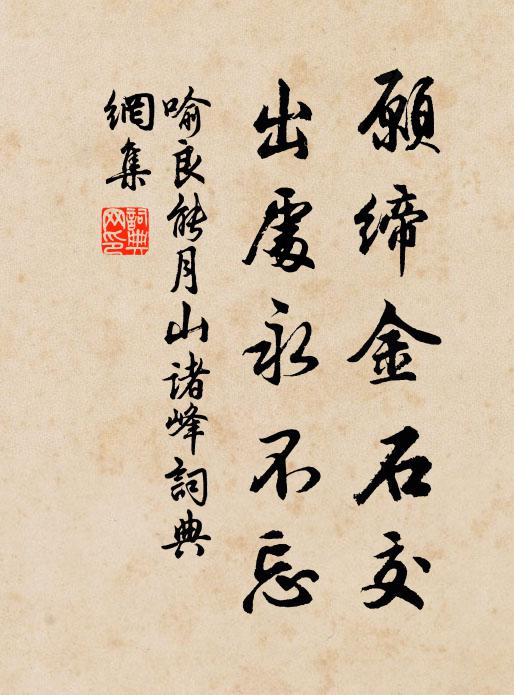 願締金石交
出處永不忘
喻良能月山諸峰詞典
網集
詞典网印